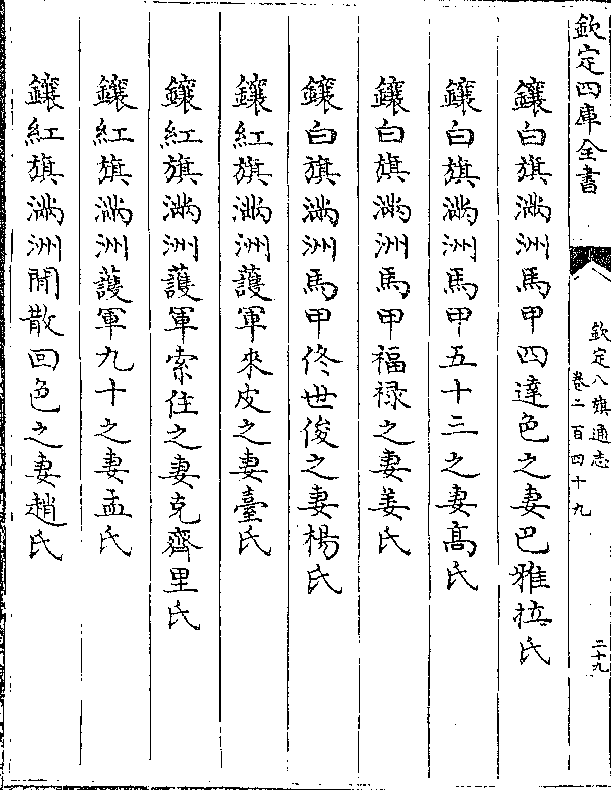 欽定四庫全書
欽定八旗通志
卷二百四十九
二十九
鑲白旗滿洲馬甲四達色之妻巴雅拉氏
鑲白旗滿洲馬甲五十三之妻高氏
鑲白旗滿洲馬甲福禄之妻姜氏
鑲白旗滿洲馬甲佟世俊之妻楊氏
鑲紅旗滿洲護軍來皮之妻臺氏
鑲紅旗滿洲護軍索住之妻克齊里氏
鑲紅旗滿洲護軍九十之妻孟氏
鑲紅旗滿洲閒散回色之妻趙氏